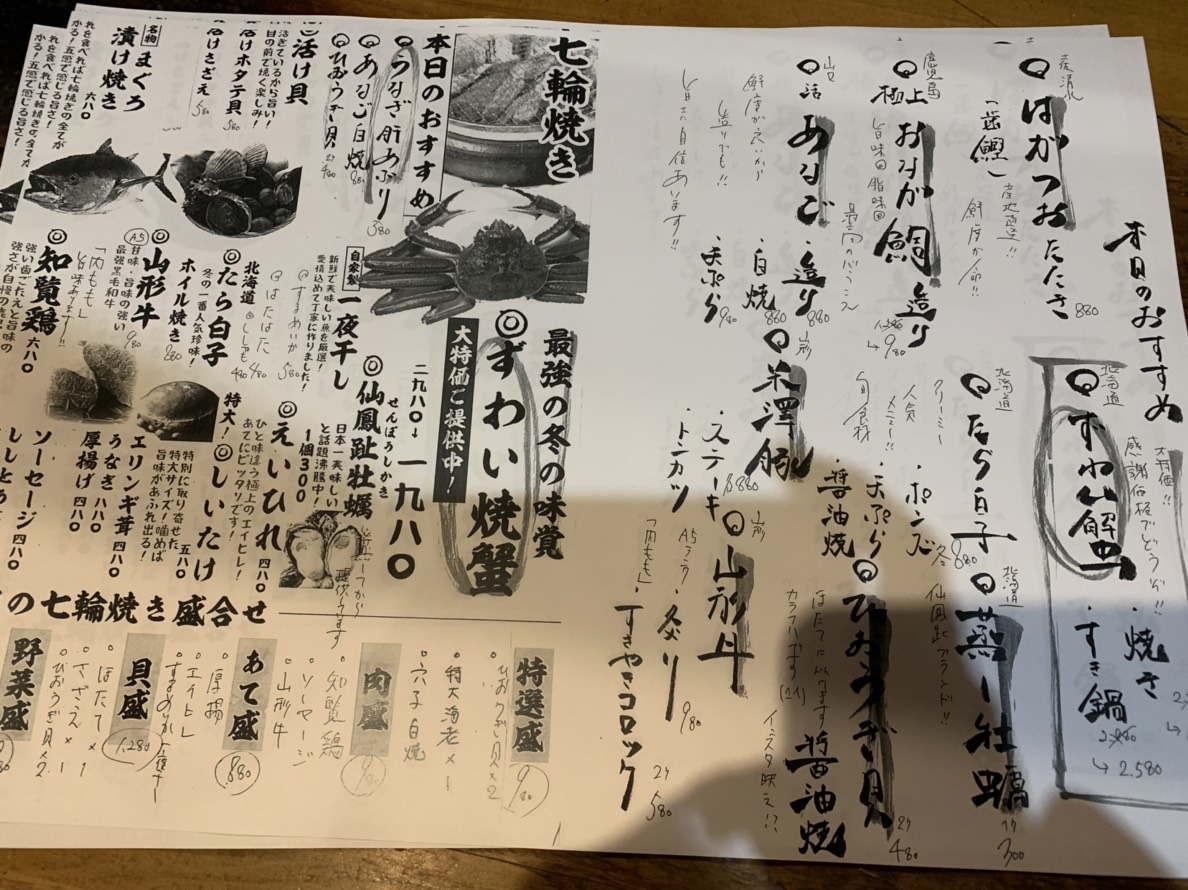 本日のおすすめ
北海道
大特価!!
感謝価格でどうぞ!!
◎ずわい蟹
・焼き
・すき鍋
2,580
◎はがつおたたき
(歯鰹)
産地直送!!
鮮度が命!!
880
北海道
◎たら白子
クリーミー
人気
メニュー!!
・ポンズ
・天ぷら
各880
北海道
◎蒸し牡蠣
仙鳳趾ブランド!!
1ケ
300
鹿児島
◎極上おなが鯛造り
旨味◎脂味◎
980
旬食材
・醤油焼
◎ひおうぎ貝
ほたてに似てます
醤油焼
2ケ
480
◎活あなご
・造り
880
・白焼
860
・天ぷら
980
旨さ自信あります!!
◎米澤豚
・ステーキ
・トンカツ
880
◎山形牛
「内もも」
・炙り
980
・すきやきコロッケ
2ケ
580
七輪焼き
本日のおすすめ
◎うなぎ肝あぶり
580
◎あなご白焼
880
◎ひおうぎ貝
2ケ
480
◎活け貝
活きているから旨い!
目の前で焼く楽しみ!
活けホタテ貝
580
活けさざえ
580
名物
まぐろ
漬け焼き
六八〇
れを食べれば七輪焼きの全てが
かる!五感で感じる旨さ!
最強の冬の味覚
◎ずわい焼蟹
大特価ご提供中!
二九八〇→一九八〇
◎仙鳳趾牡蠣
せんぽうしかき
日本一美味しい
と話題沸騰中!
1個300
自家製
一夜干し
新鮮で美味しい魚を厳選!
愛情込めて丁寧に作りました!
◎するめいか
580
◎はたはた
480
◎ししゃも
480
北海道
◎たら白子
冬の一番人気珍味!
ホイル焼き
880
◎山形牛
A5
甘味・旨味の強い
最強黒毛和牛
980
「内もも」
旨味あります!!
◎知覧鶏
六八〇
強い歯ごたえと旨味の
強さが自慢の
◎えいひれ
四八〇
ひと味違う極上のエイヒレ!
あてにピッタリです!
特大!
◎しいたけ
五八〇
特別に取り寄せた
特大サイズ!噛めば
旨味があふれ出る!
エリンギ茸
四八〇
うなぎ
八八〇
厚揚げ
四八〇
ソーセージ
四八〇
の七輪焼き盛合せ
特選盛
980
・ひおうぎ貝×2
・特大海老×1
・穴子白焼
肉盛
980
・知覧鶏
・ソーセージ
・山形牛
あて盛
880
・厚揚
・エイヒレ
・するめいか一夜干し
貝盛
1,280
・ほたて×1
・さざえ×1
・ひおうぎ貝×2
野菜盛